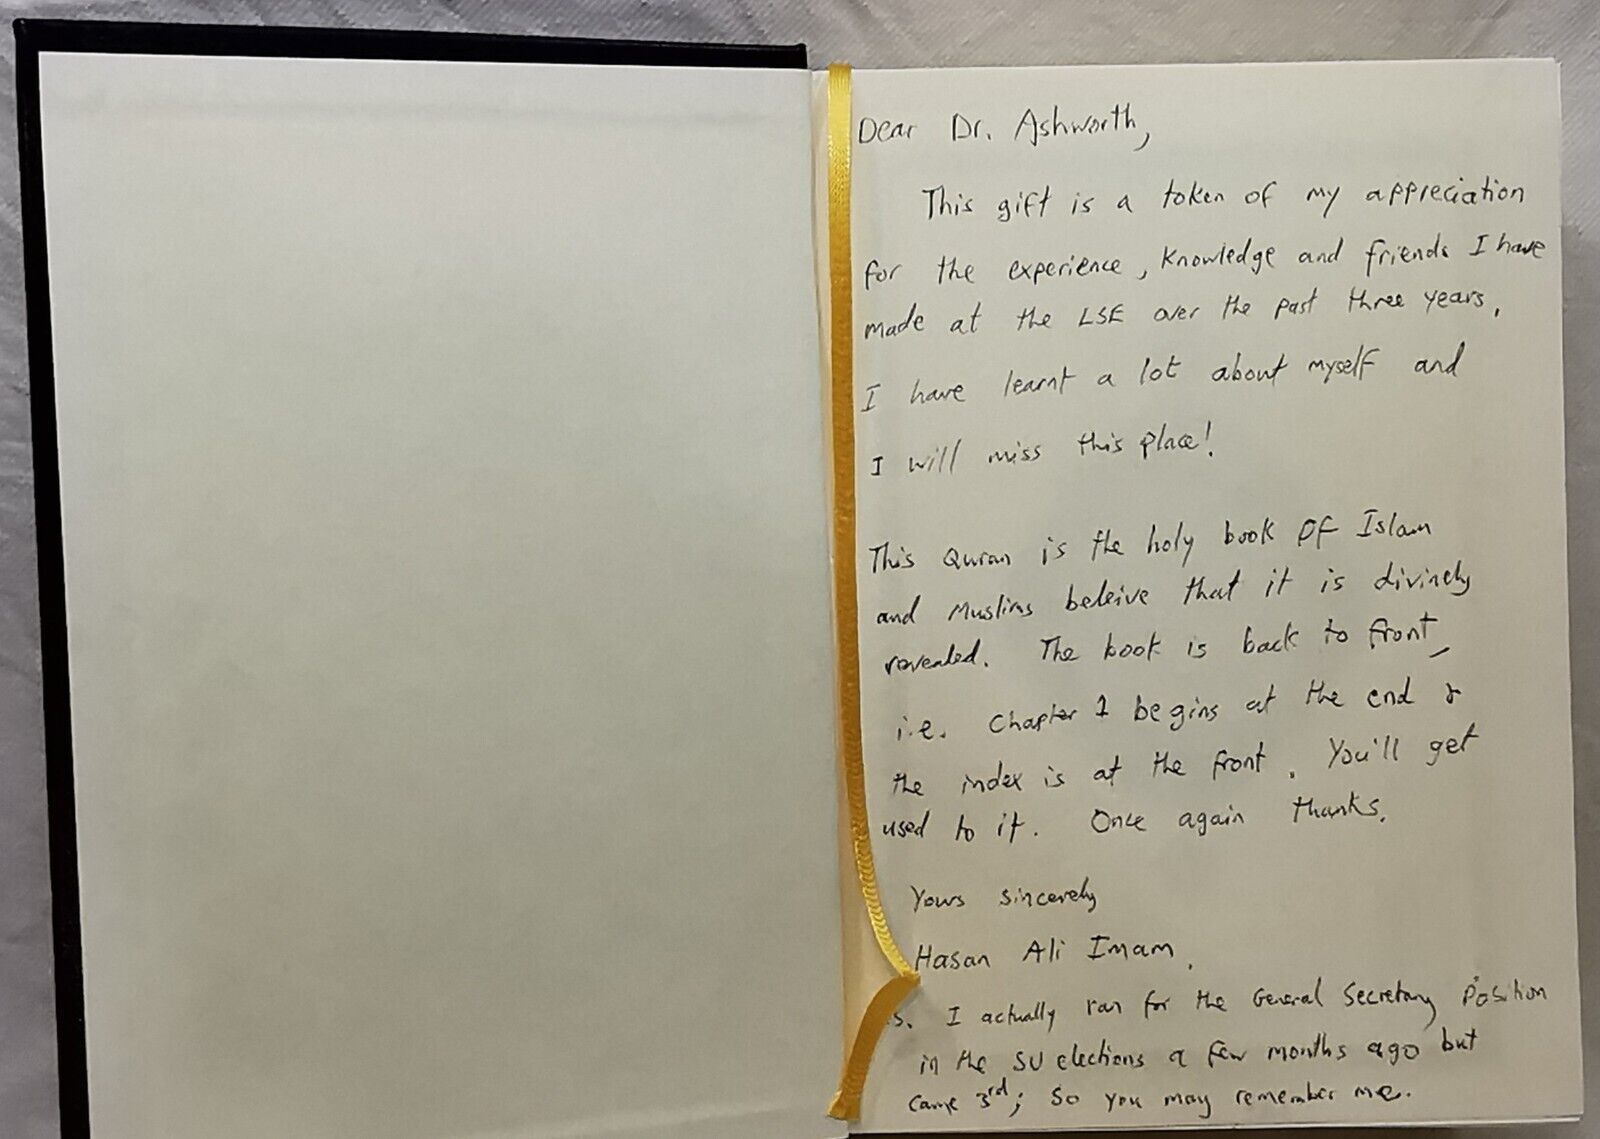 Dear Dr. Ashworth,
This gift is a token of my appreciation
for the experience, knowledge and friends I have
made at the LSE over the past three years.
I have learnt a lot about myself and
I will miss this place!
This Quran is the holy book of Islam
and Muslims beleive that it is divinely
revealed. The book is back to front,
i.e. Chapter 1 begins at the end &
the index is at the front. You'll get
used to it. Once again thanks.
Yours sincerely
Hasan Ali Imam.
s. I actually ran for the General Secretary Position
in the SU elections a few months ago but
came 3rd; so you may remember me.